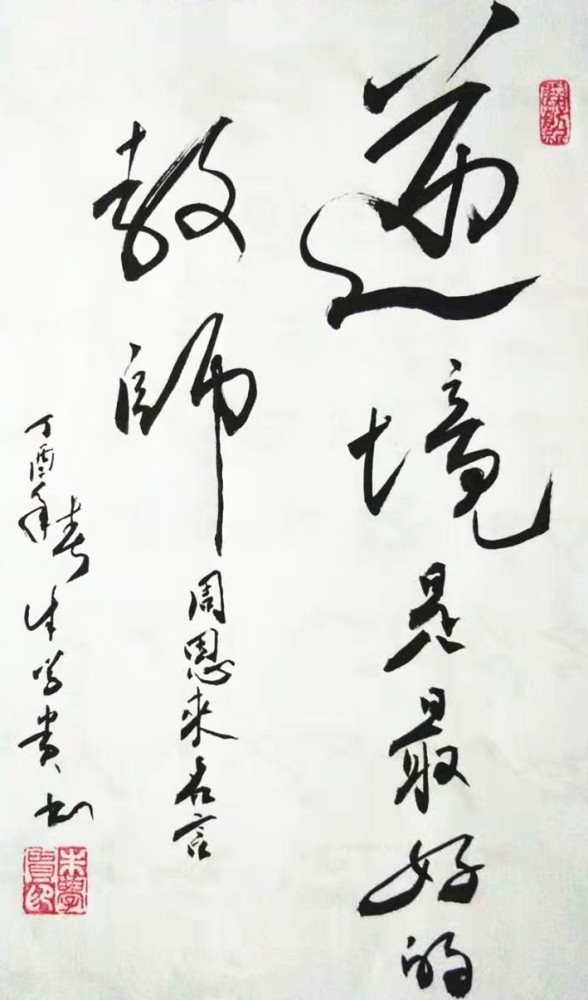 逆境是最好的
教師
周恩来名言
丁酉年春朱学贵书
朱學貴印